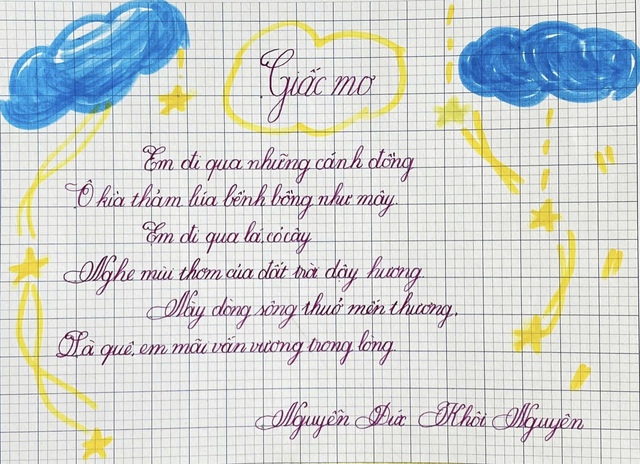 Giấc mơ
Em đi qua những cánh đồng
Ô kìa thảm lúa bềnh bồng như mây.
Em đi qua lá, cỏ cây
Nghe mùi thơm của đất trời dậy hương.
Này dòng sông thuở mến thương,
Xà quê, em mãi vấn vương trong lòng.
Nguyễn Đức Khôi Nguyên